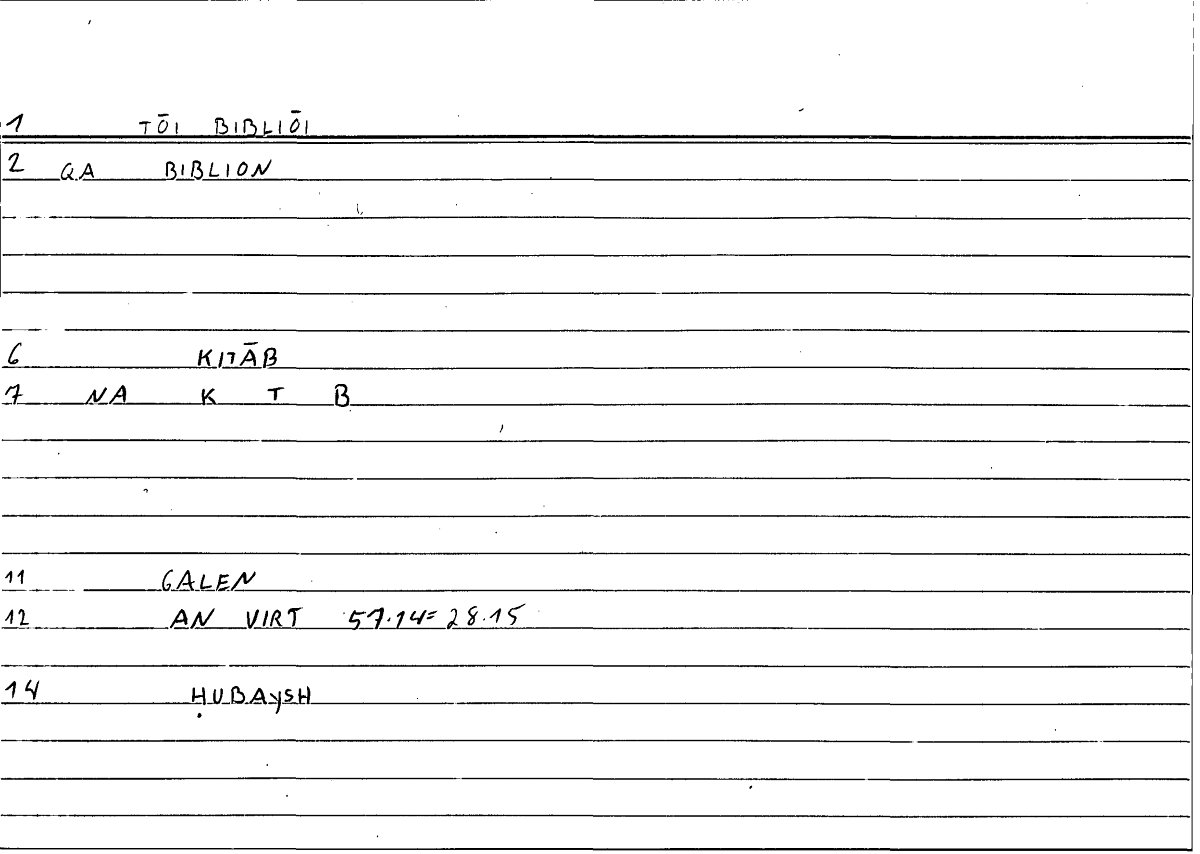 1 TŌI BIBLIŌI
2 QA BIBLION
6 KITĀB
7 NA K T B
11 GALEN
12 AN VIRT 57.14=28.15
14 ḤUBAYSH